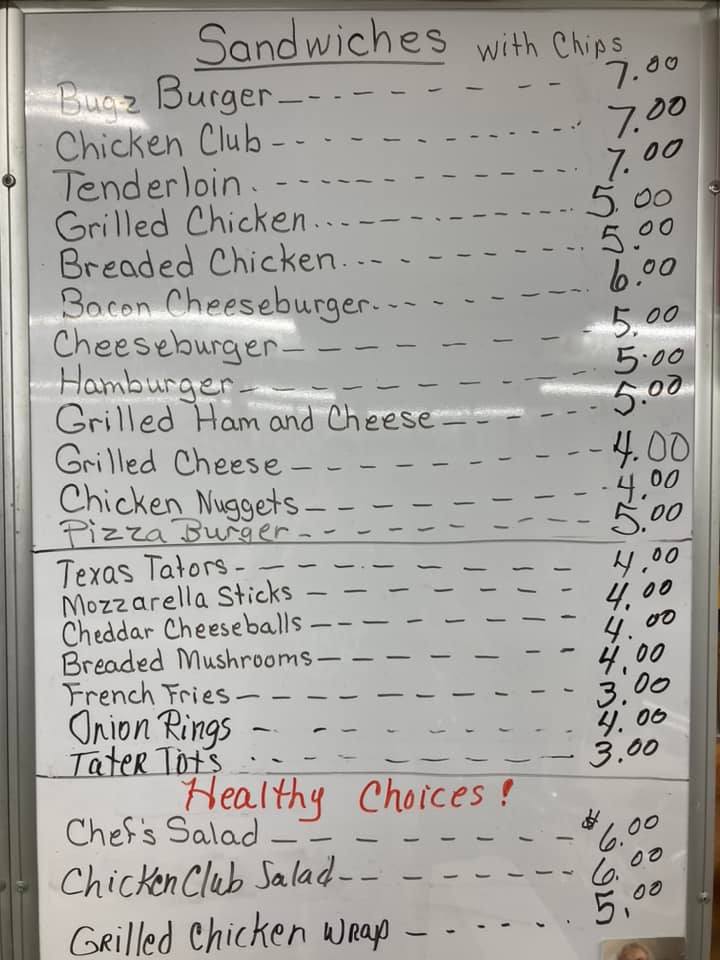 Sandwiches with Chips
Bugz Burger 7.00
Chicken Club 7.00
Tenderloin 7.00
Grilled Chicken 5.00
Breaded Chicken 5.00
Bacon Cheeseburger 6.00
Cheeseburger 5.00
Hamburger 5.00
Grilled Ham and Cheese 5.00
Grilled Cheese 4.00
Chicken Nuggets 4.00
Pizza Burger 5.00
Texas Tators 4.00
Mozzarella Sticks 4.00
Cheddar Cheeseballs 4.00
Breaded Mushrooms 4.00
French Fries 3.00
Onion Rings 4.00
Tater Tots 3.00
Healthy Choices!
Chef's Salad $6.00
Chicken Club Salad 6.00
Grilled Chicken Wrap 5.00